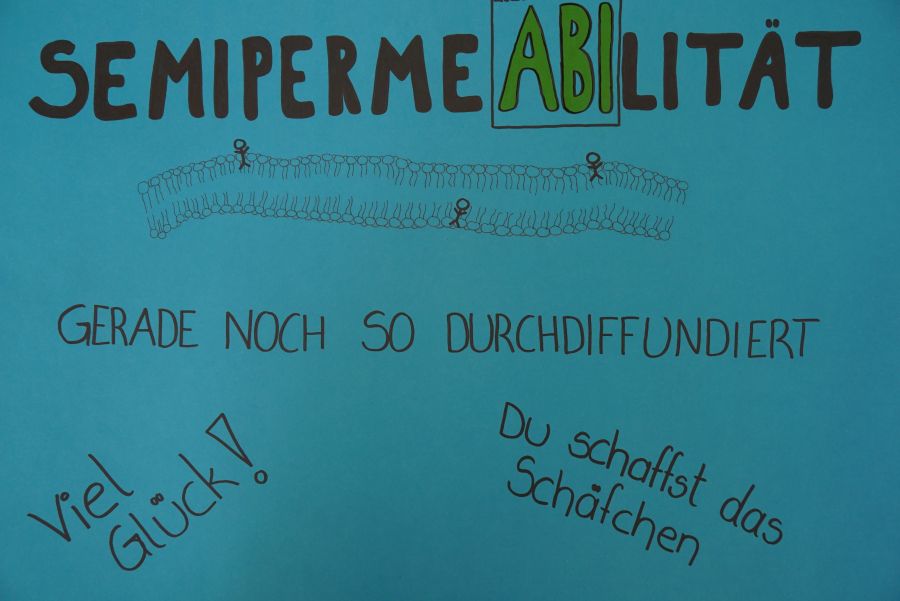 SEMIPERMEABILITÄT
GERADE NOCH SO DURCHDIFFUNDIERT
Viel
Glück!
Du schaffst das
Schäfchen